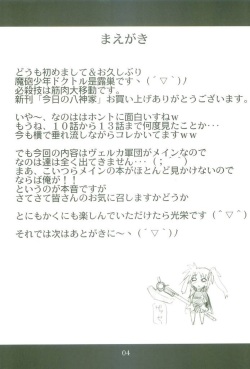 まえがき
どうも初めまして＆お久しぶり
魔砲少年ドクトル是露巣ですヽ(´▽`)ノ
必殺技は筋肉大移動です。
新刊「今日の八神家」お買い上げありがとうございます。
いや〜、なのははホントに面白いすねｗ
もうね、１０話から１３話まで何度見たことか・・・
今も横で垂れ流しながらコレかいてますｗ
でも今回の内容はヴェルカ軍団がメインなので
なのは達は全く出てきません・・・(；´▽`)
まあ、こいつらメインの本がほとんど見かけないので
ならば俺が！！
というのが本音です。
さてさて皆さんのお気に召しますかどうか
とにもかくにも楽しんでいただけたら光栄です(´▽`)
それでは次はあとがきに〜ヽ(´▽`)ノ
04